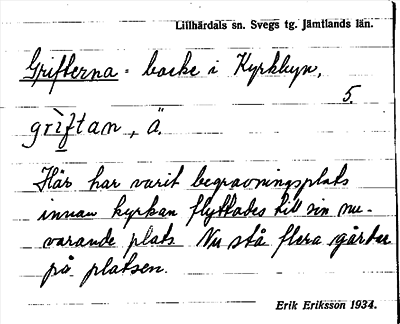 Lillhärdals sn. Svegs tg. Jämtlands län.
Grifterna = backe i Kyrkbyn,
5.
grìftan, Ä.
Här har varit begravningsplats
innan kyrkan flyttades till sin nu-
varande plats. Nu stå flera gårdar
på platsen.
Erik Eriksson 1934.